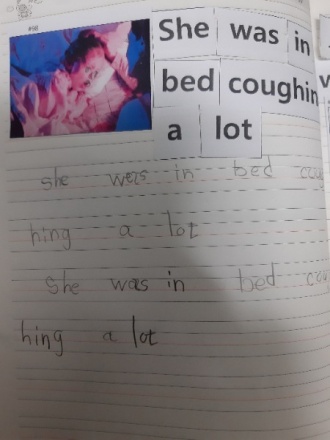 #98
She was in
bed coughin
a lot
she was in bed cou
hing a lot
she was in bed co
hing a lot